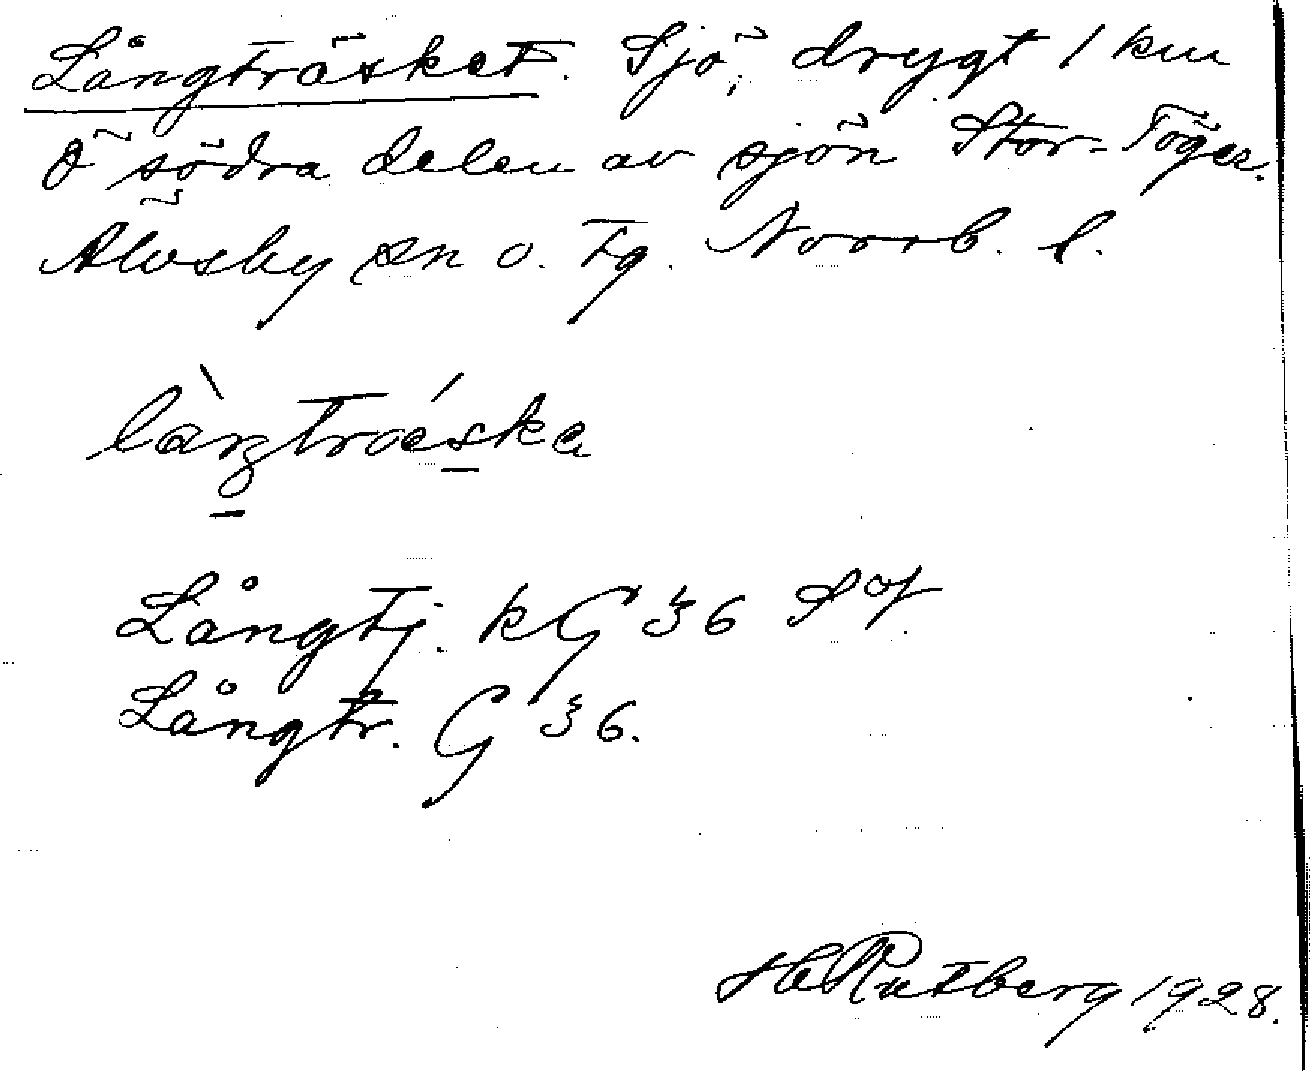 Långträsket. Sjö, drygt 1 km
Ö södra delen av sjön Stor-Töger.
Älvsby sn o. tg. Norrb. l.
làŋtræ´ska
Långtj. kG 36 SOf
Långtr. G 36.
H Rutberg 1928.